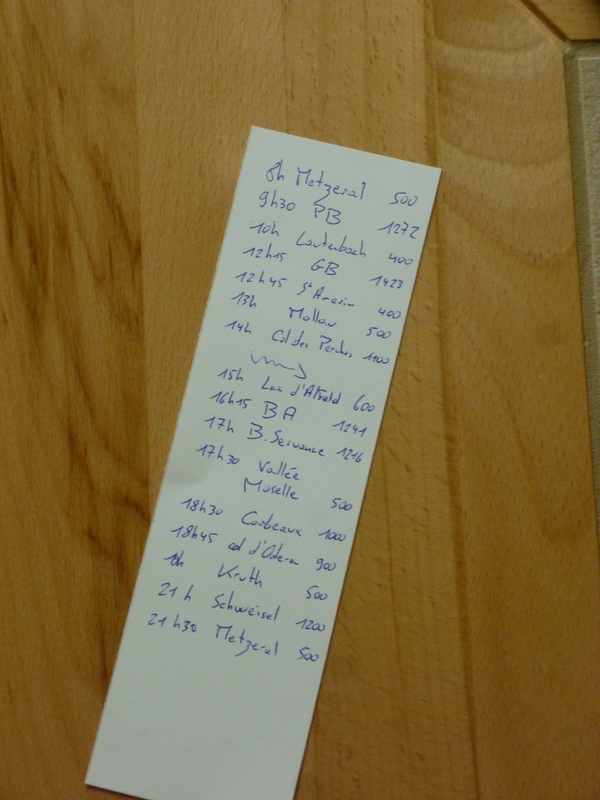 8h Metzeral 500
9h30 PB 1272
10h Lautenbach 400
12h15 GB 1423
12h45 St Amarin 400
13h Mollau 500
14h Col des Perches 1100
15h Lac d'Alfeld 600
16h15 BA 1241
17h B. Servance 1216
17h30 Vallée
Moselle 500
18h30 Corbeaux 1000
18h45 col d'Oderen 900
Kruth 500
21h Schweisel 1200
21h30 Metzeral 500